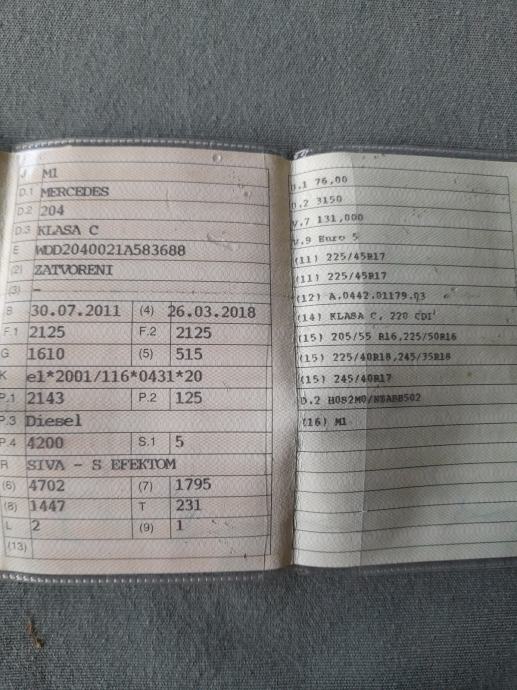 J M1
D.1 MERCEDES
D.2 204
D.3 KLASA C
E WDD2040021A583688
(2) ZATVORENI
(3) -
B 30.07.2011 (4) 26.03.2018
F.1 2125 F.2 2125
G 1610 (5) 515
K e1*2001/116*0431*20
P.1 2143 P.2 125
P.3 Diesel
P.4 4200 S.1 5
R SIVA - S EFEKTOM
(6) 4702 (7) 1795
(8) 1447 T 231
L 2 (9) 1
(13)
U.1 76,00
U.2 3150
V.7 131,000
V.9 Euro 5
(11) 225/45R17
(11) 225/45R17
(12) A.0442.01179.93
(14) KLASA C, 220 CDI
(15) 205/55 R16,225/50R16
(15) 225/40R18,245/35R18
(15) 245/40R17
D.2 H0S2M0/NZABB502
(16) M1